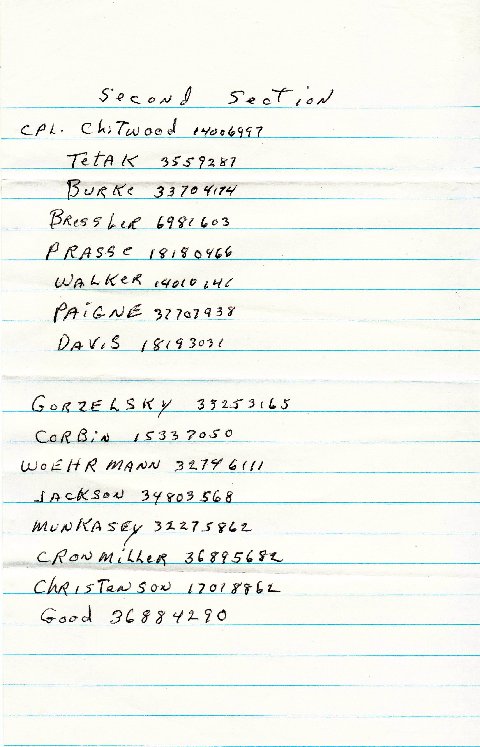 Second Section
CPL. Chitwood 14006997
TetAK 3559287
BURKe 33704174
BRessLeR 6981603
PRASSe 18180466
WALKeR 14010141
PAiGNE 37707938
DAViS 18193031
GORZELSKY 35253165
CORBiN 15337050
WOEHRMANN 32746111
JACKSON 34803568
MUNKASEY 32275862
CRONMilleR 36895682
ChRiSTenSON 17018862
Good 36884290